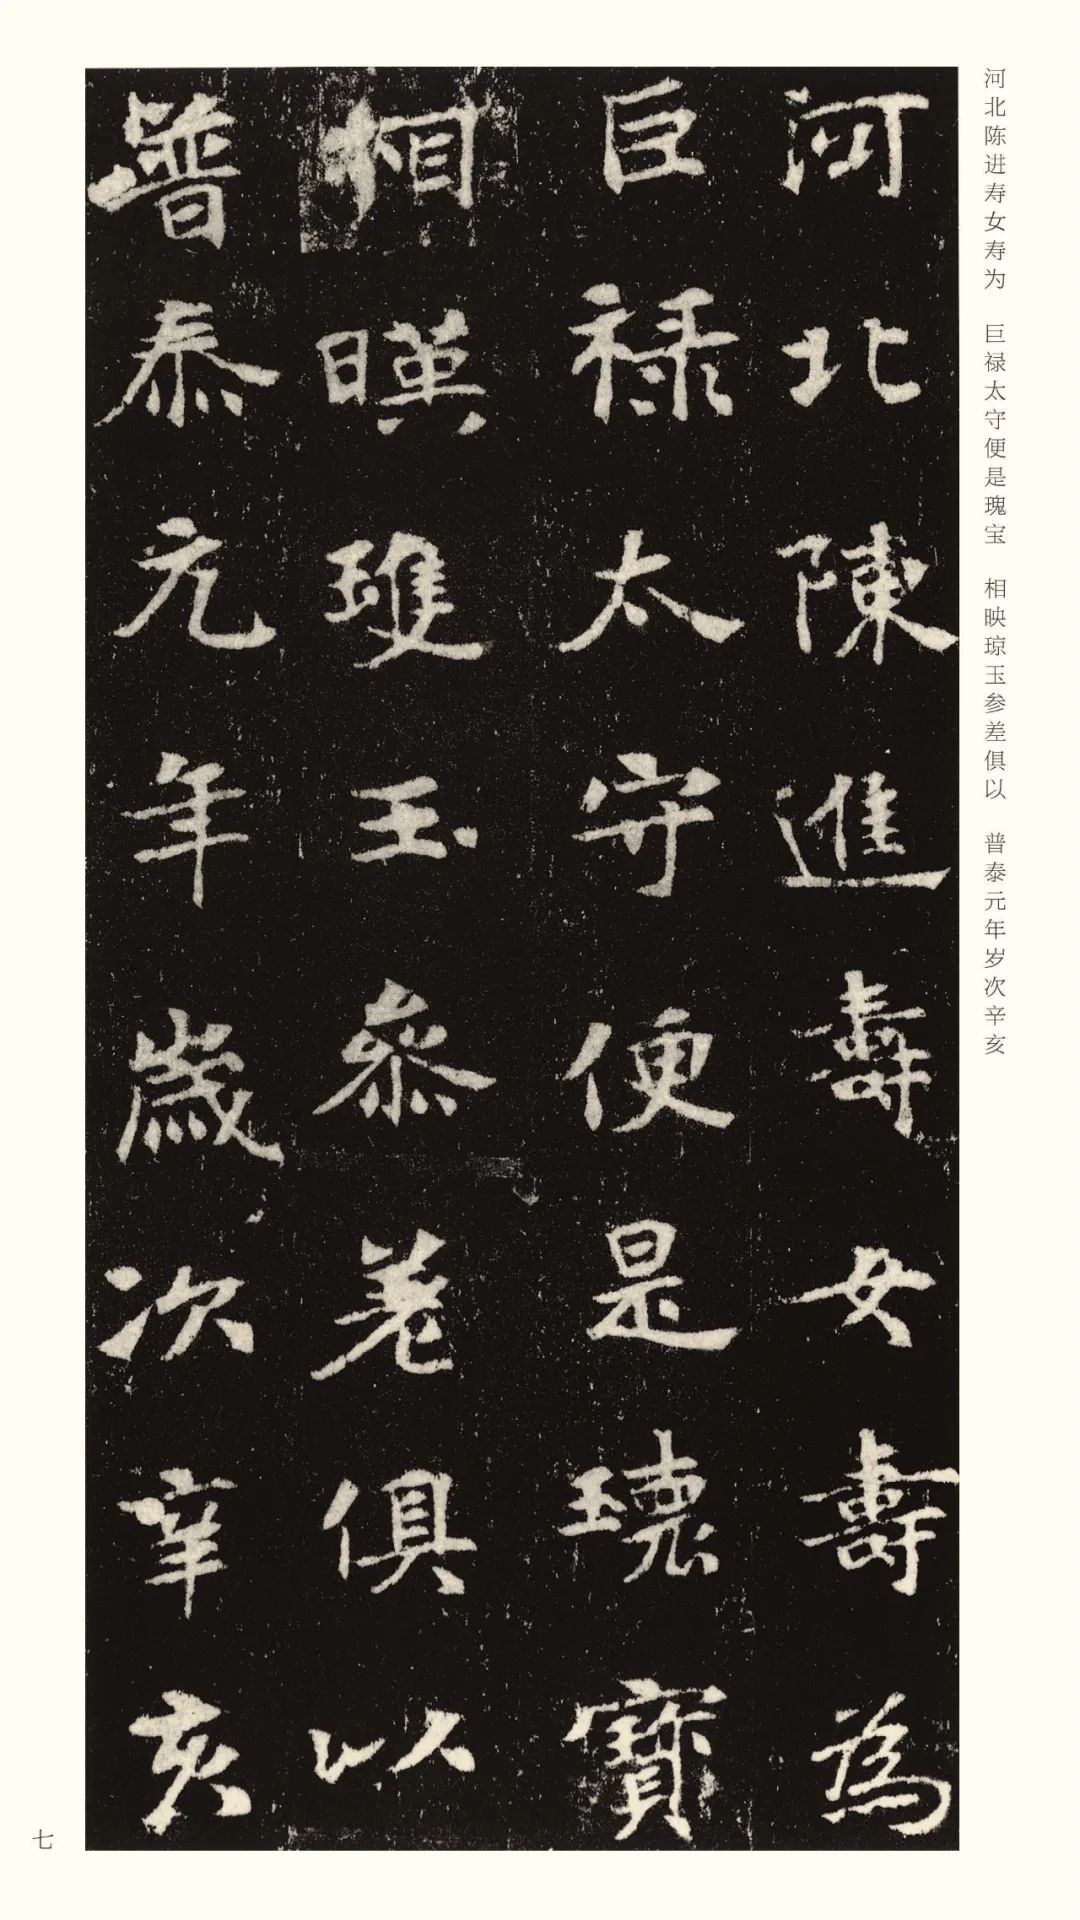 河北陈进寿女寿为 巨禄太守便是瑰宝 相映琼玉参差俱以 普泰元年岁次辛亥
河北陳進壽女壽為
巨禄太守便是瓌寶
相暎瓊玉叅差俱以
普泰元年歲次辛亥
七